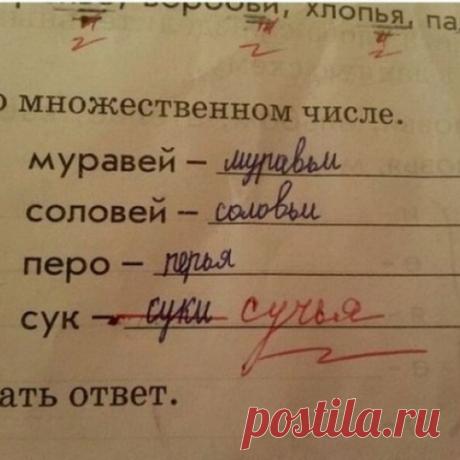 хлопья, па
о множественном числе.
муравей – муравьи
соловей – соловьи
перо – перья
сук – суки сучья
ать ответ.
postila.ru